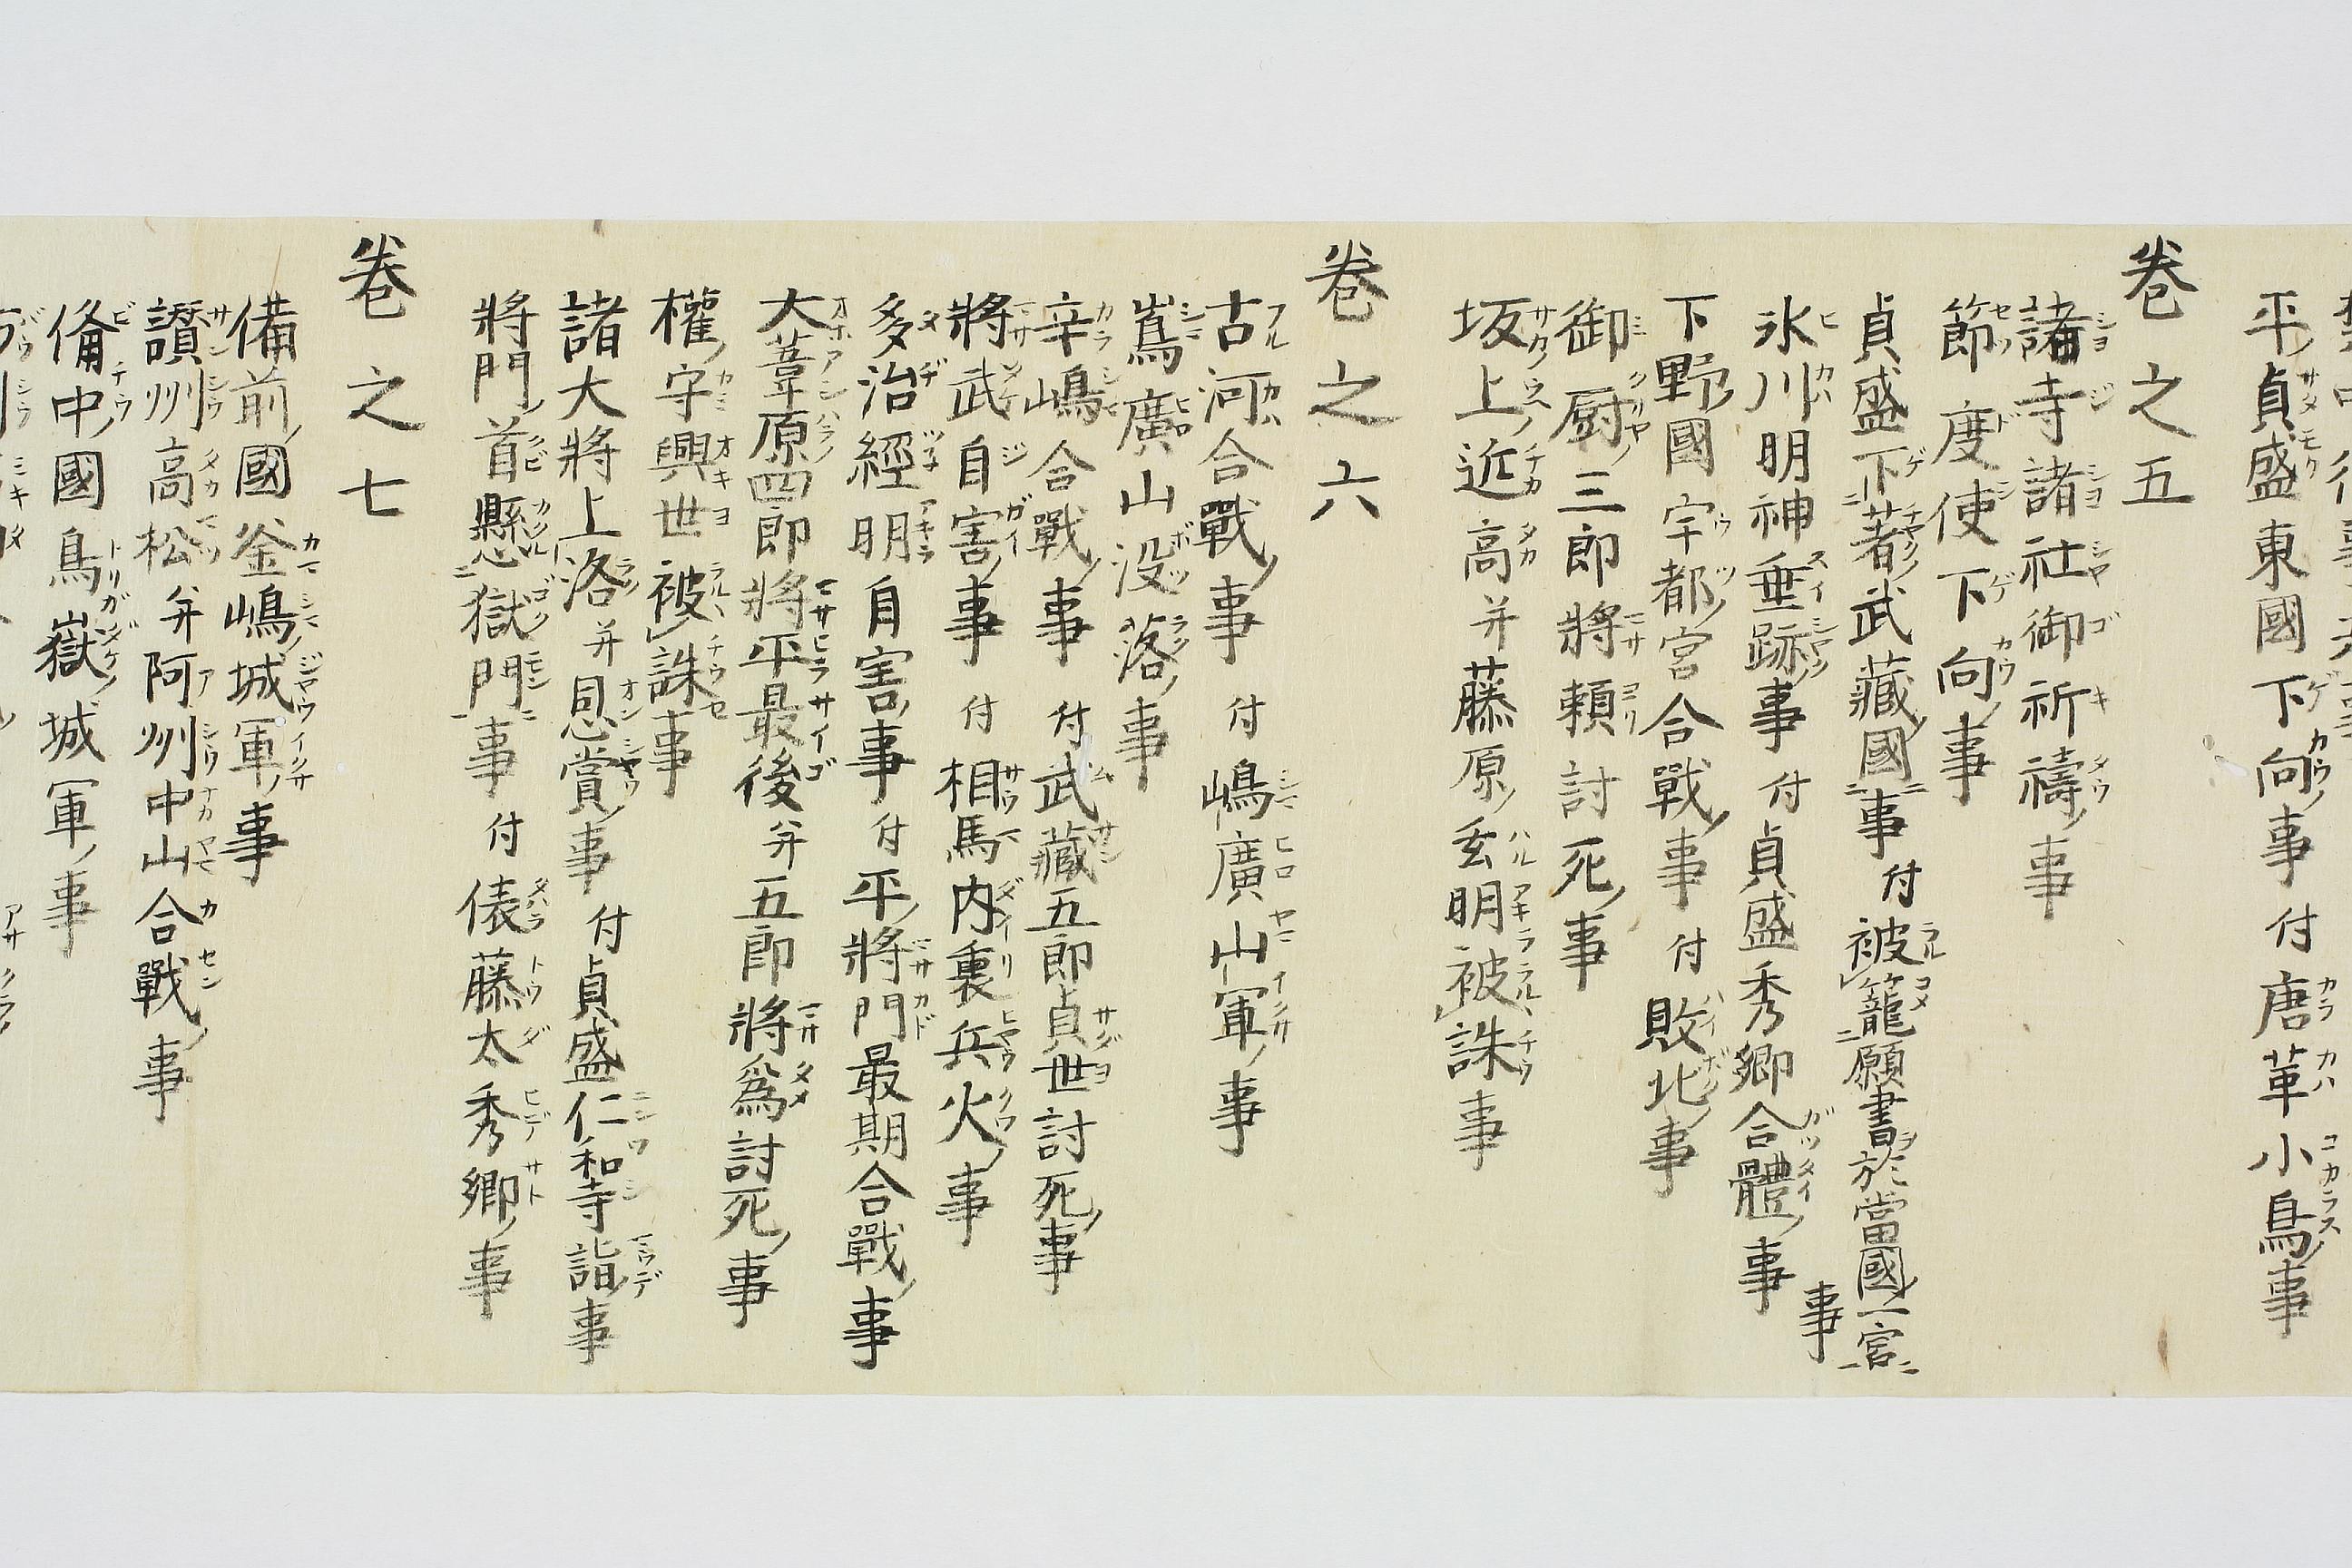 平貞盛東國下向事 付 唐革小烏事
卷之五
諸寺諸社御祈禱事
節度使下向事
貞盛下著武藏國事 付 被籠願書於當國一宮事
氷川明神垂跡事 付 貞盛秀卿合體事
下野國宇都宮合戰事 付 敗北事
御厨三郎將頼討死事
坂上近高并藤原玄明被誅事
卷之六
古河合戰事 付 嶋廣山軍事
嶌廣山没落事
辛嶋合戰事 付 武藏五郎貞世討死事
將武自害事 付 相馬内裏兵火事
多治經明自害事 付 平將門最期合戰事
大葦原四郎將平最後并五郎將爲討死事
權守興世被誅事
諸大將上洛并恩賞事 付 貞盛仁和寺詣事
將門首懸獄門事 付 俵藤太秀卿事
卷之七
備前國釜嶋城軍事
讃州高松并阿州中山合戰事
俻中國鳥嶽城軍事